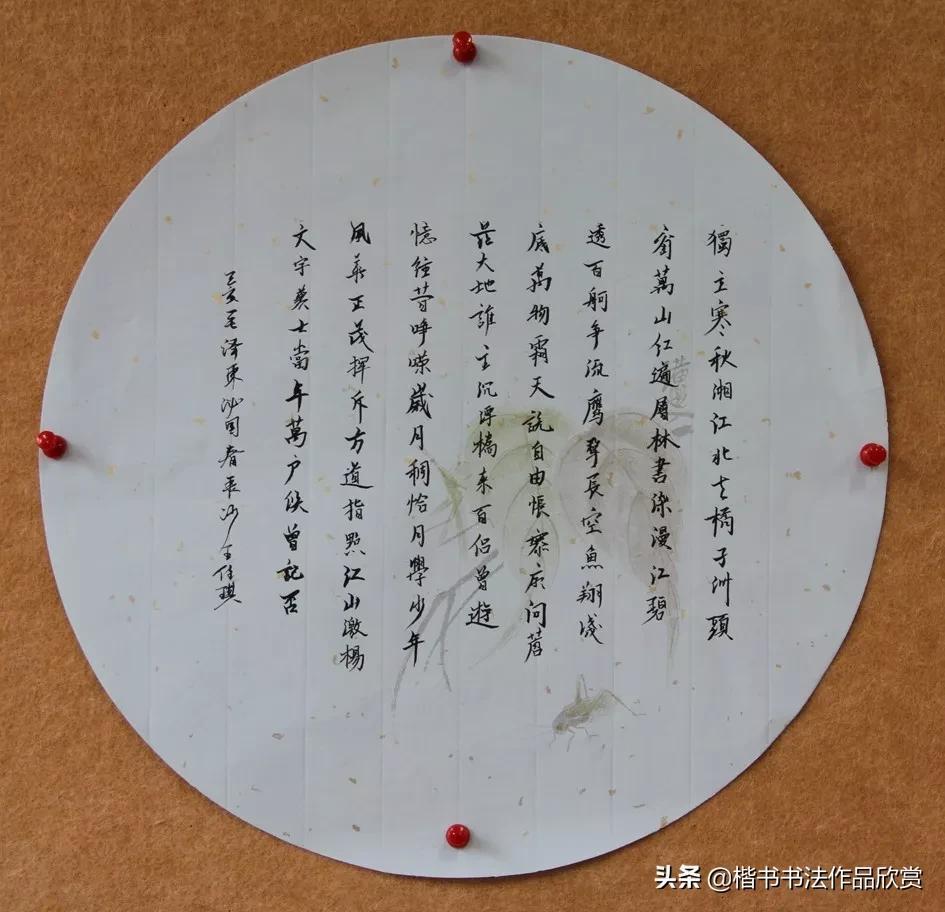 獨立寒秋湘江北去橘子洲頭
看萬山红遍層林盡染漫江碧
透百舸争流鹰擊長空魚翔淺
底萬物霜天競自由悵寥廓問蒼
茫大地誰主沉浮攜来百侣曾遊
憶往昔崢嶸歲月稠恰同學少年
風華正茂揮斥方遒指點江山激揚
文字糞土當年萬户侯曾記否
己亥毛泽東沁园春長沙王佳琪
头条 @楷书书法作品欣赏